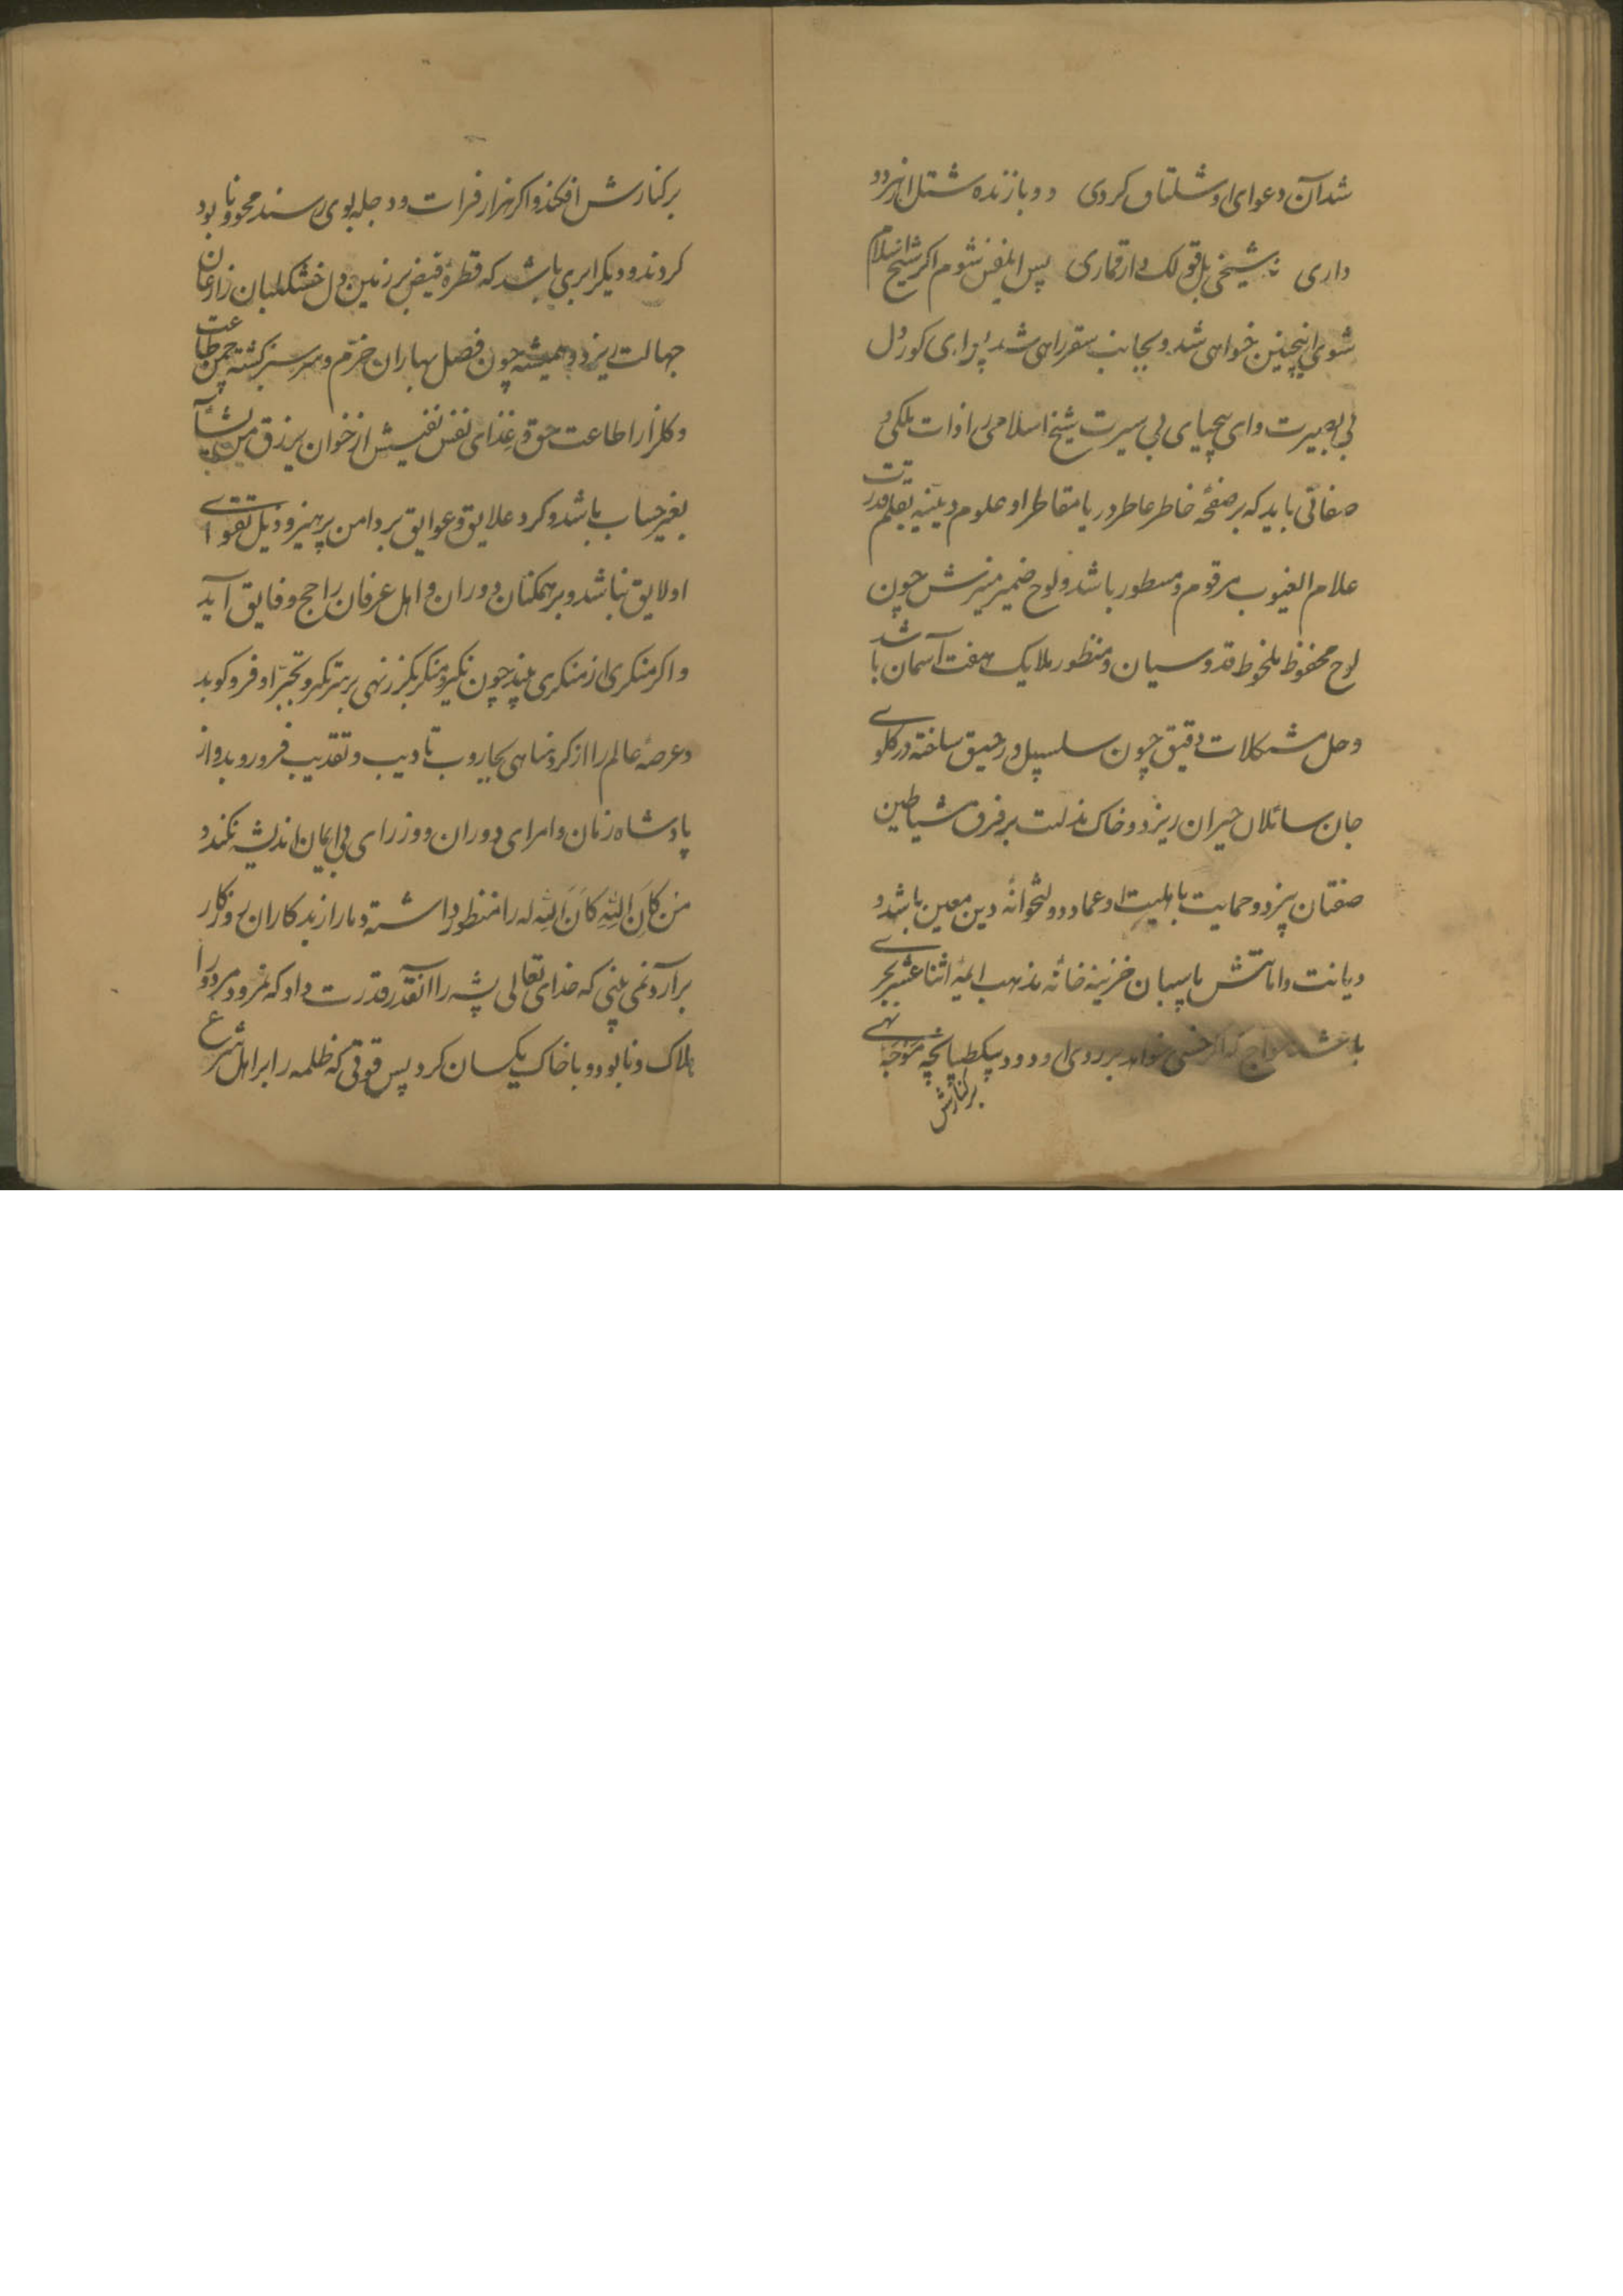 شد آن دعوای او شلتاق کردی دو بازنده شتل از نردد
داری نه شیخی بل قولک دار قماری پس ای نفس شوم اگر شیخ اسلام
شوی اینچنین خواهی شد و بجانب سقر راهی شد ای کور دل
بی بصیرت و ای بیحیای بی سیرت شیخ اسلامی را ذات ملکی
صفاتی باید که بر صفحه خاطر عاطر دریا مقاطر او علوم دینیه بقلم قدرت
علام الغیوب مرقوم و مسطور باشد و لوح ضمیر منیرش چون
لوح محفوظ ملحوظ قدوسیان و منظور ملایک هفت آسمان باشد
و حل مشکلات دقیق چون سلسبیل و رحیق ساخته در کلوی
جان سائلان حیران ریزد و خاک مذلت بر فرق شیاطین
صفتان بیزد و حمایت با اهلیت او عماد دولتخوانه دین معین باشد و
دیانت و امانتش پاسبان خزینه خانه مذهب ایمه اثنا عشر بحری
باشد مواج که اگر خسی خواهد بر روی او رود بیکطپانچه موجه نهی
برکنارش
برکنارش افکند و اکر هزار فرات و دجله بوی رسند محو و نابود
کردند و دیکر ابری باشد که قطره فیض بر زمین دل خشکلبان زاوغان
جهالت ریزد و همیشه چون فصل بهاران خرم و سر سبز کشته چمن طاعت
و کلزار اطاعت حق و غذای نفس نفیسش از خوان یرزق من یشآ
بغیر حساب باشد و کرد علایق و عوایق بر دامن پرهیز و ذیل تقوای
او لایق نباشد و بر همکنان دوران و اهل عرفان راجح و فایق آید
و اکر منکری از منکری بیند چون نکیر و منکر بکرز نهی بر سر تکبر و تجبر او فرو کوبد
و عرصه عالم را از کرد مناهی بجاروب تادیب و تعذیب فرو روبد و از
پادشاه زمان و امرای دوران و وزرای بی ایمان اندیشه نکند و
من کان لله کان الله له را منظور داشته دمار از بدکاران روزکار
برآرد نمی بینی که خدای تعالی پشه را آنقدر قدرت داد که نمرود مردود را
هلاک و نابود و با خاک یکسان کرد پس قوتی که ظلمه را بر اهل شرع